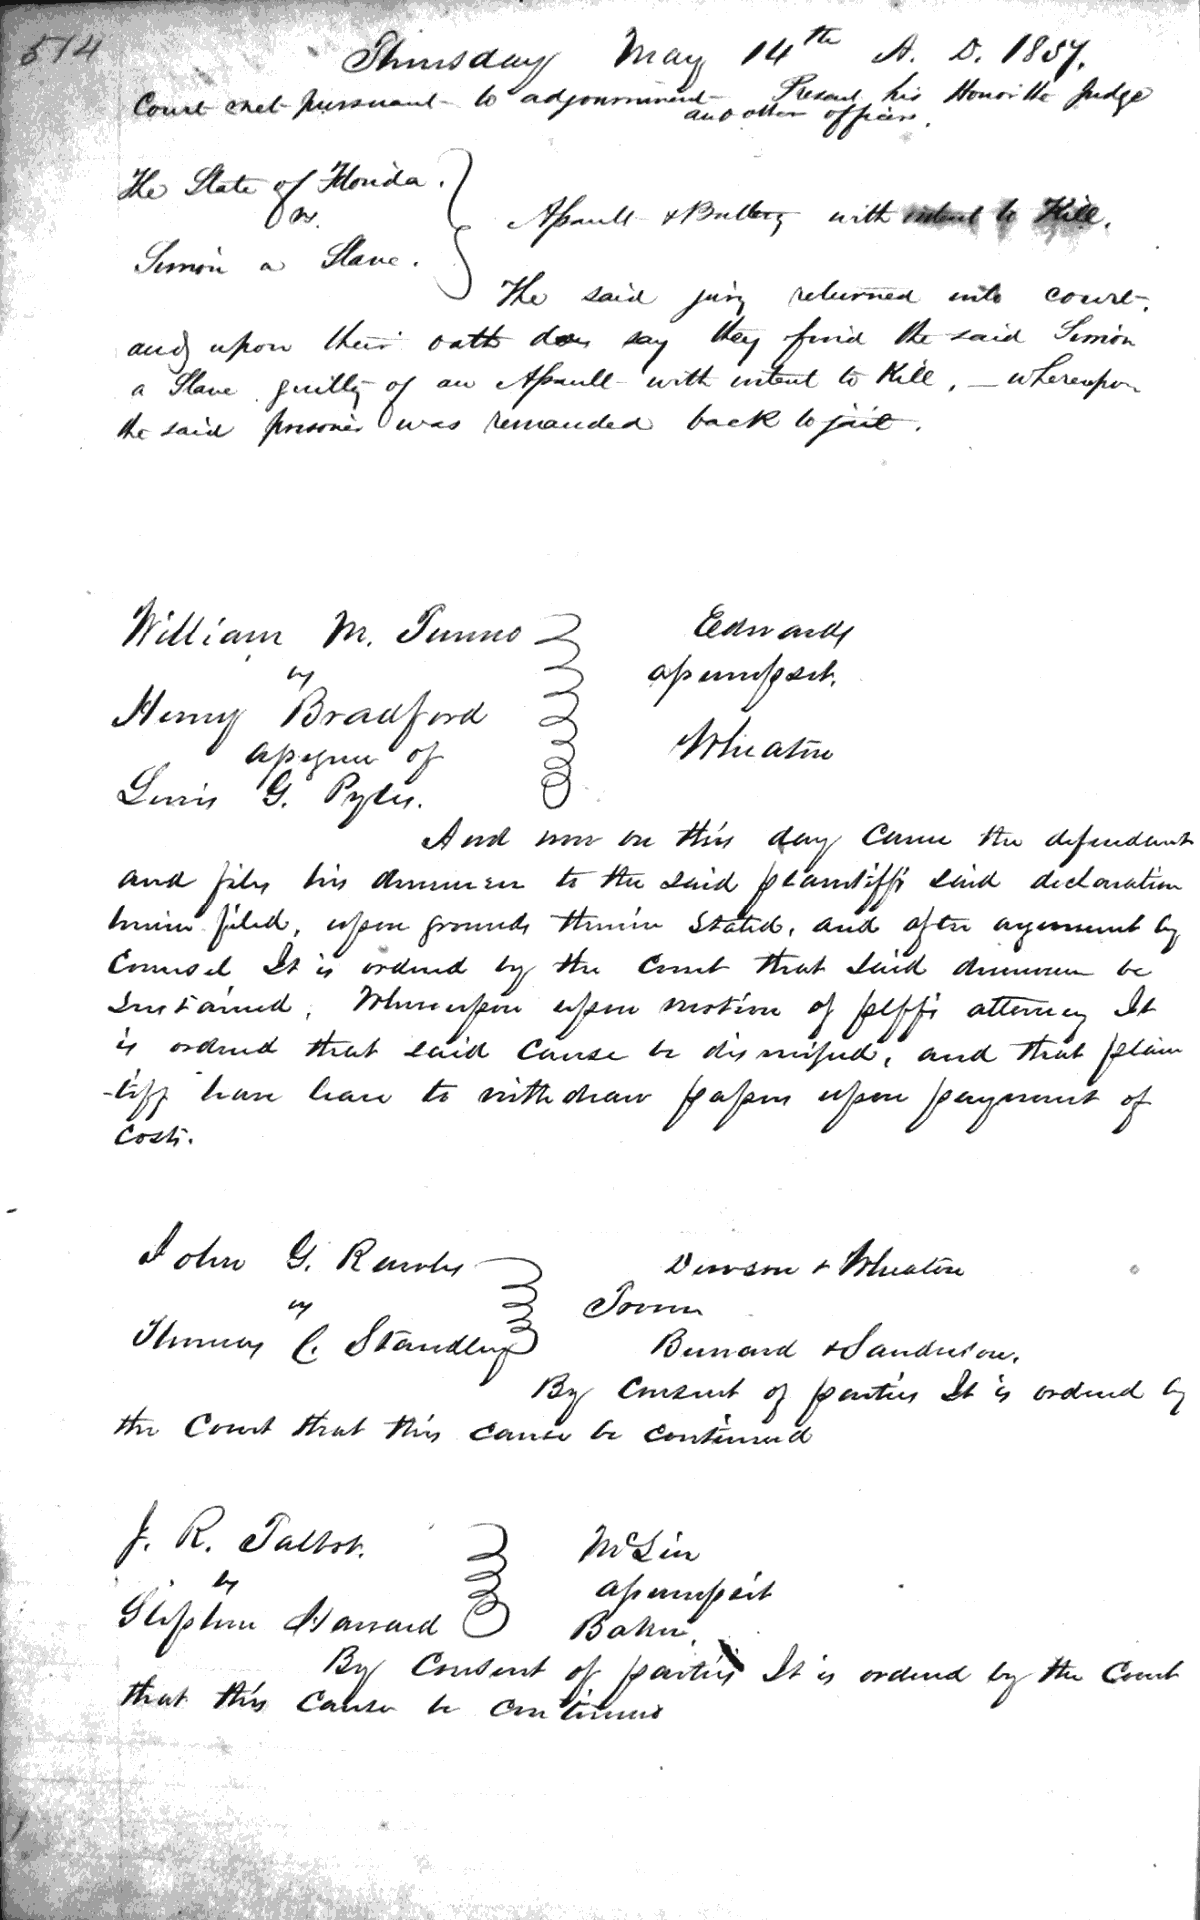 514
Thursday May 14th A. D. 1857.
Court met pursuant to adjournment Present his Honor the Judge
and other officers.
The State of Florida.
vs.
Simon a Slave.
Assault & Battery with intent to Kill.
The said jury returned into court,
and upon their oath does say they find the said Simon
a Slave guilty of an Assault with intent to Kill, — whereupon
the said prisoner was remanded back to jail.
William M. Tunno
vs
Henry Bradford
assignee of
Lewis G. Pyles.
Edwards
assumpsit.
Wheaton
And now on this day came the defendant
and files his demurrer to the said plaintiffs said declaration
herein filed, upon grounds therein stated, and after argument by
Counsel It is ordered by the Court that said demurrer be
sustained, Whereupon upon motion of plffs attorney It
is ordered that said cause be dismissed, and that plain
-tiff have leave to withdraw papers upon payment of
costs.
John G. Rawls
vs
Thomas C. Standley
Dawson & Wheaton
Trover
Bernard & Sanderson.
By consent of parties It is ordered by
the Court that this cause be continued
J. R. Talbot.
vs
Stephen Harvard
McLin
assumpsit
Baker.
By Consent of parties It is ordered by the Court
that this cause be continued